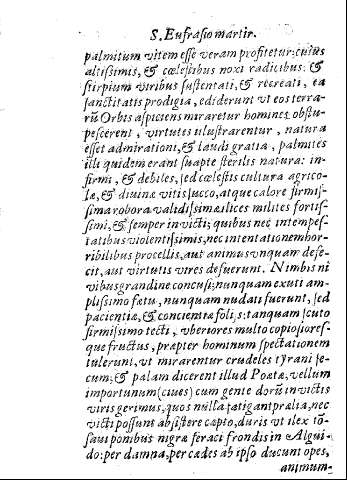 S. Eufrasio martir.
palmitum vitem esse veram profitetur: cuius
altissimis, & cœlestibus noxi radicibus: &
stirpium viribus sustentati, & recreati, ea
sanctitatis prodigia, ediderunt vt eos terra-
rũ Orbis aspiciens miraretur homines obstu-
pescerent, virtutes illustrarentur, natura
esset admirationi, & laudi gratia, palmites
illi quidem erant suapte steriles natura: in-
firmi, & debiles, sed cœlestis cultura agrico-
læ, & diuinæ vitis succo, atque calore firmis-
sima robora validissimæ ilices milites fortis-
simi, & semper inuicti; quibus nec intempes-
tatibus violentissimis, nec intentationem hor-
ribilibus procellis, aut animus vnquam defe-
cit, aut virtutis vires defuerunt. Nimbis ni
vibus grandine concusi; nunquam exuti am-
plissimo fœtu, nunquam nudati fuerunt, sed
pacientiæ, & concientiæ folijs: tanquam scuto
firmissimo tecti, vberiores multo copiosiores-
que fructus, præpter hominum spectationem
tulerunt, vt mirarentur crudeles tyrani se-
cum; & palam dicerent illud Poetæ, vellum
importunum (ciues) cum gente dorũ inuictis
viris gerimus, quos nulla fatigant prælia, nec
victi possunt absistere capto, duris vt ilex tõ-
sa uiponibus nigræ feraci frondis in Algui-
do: per damna, per cædes ab ipso ducunt opes,
animum-